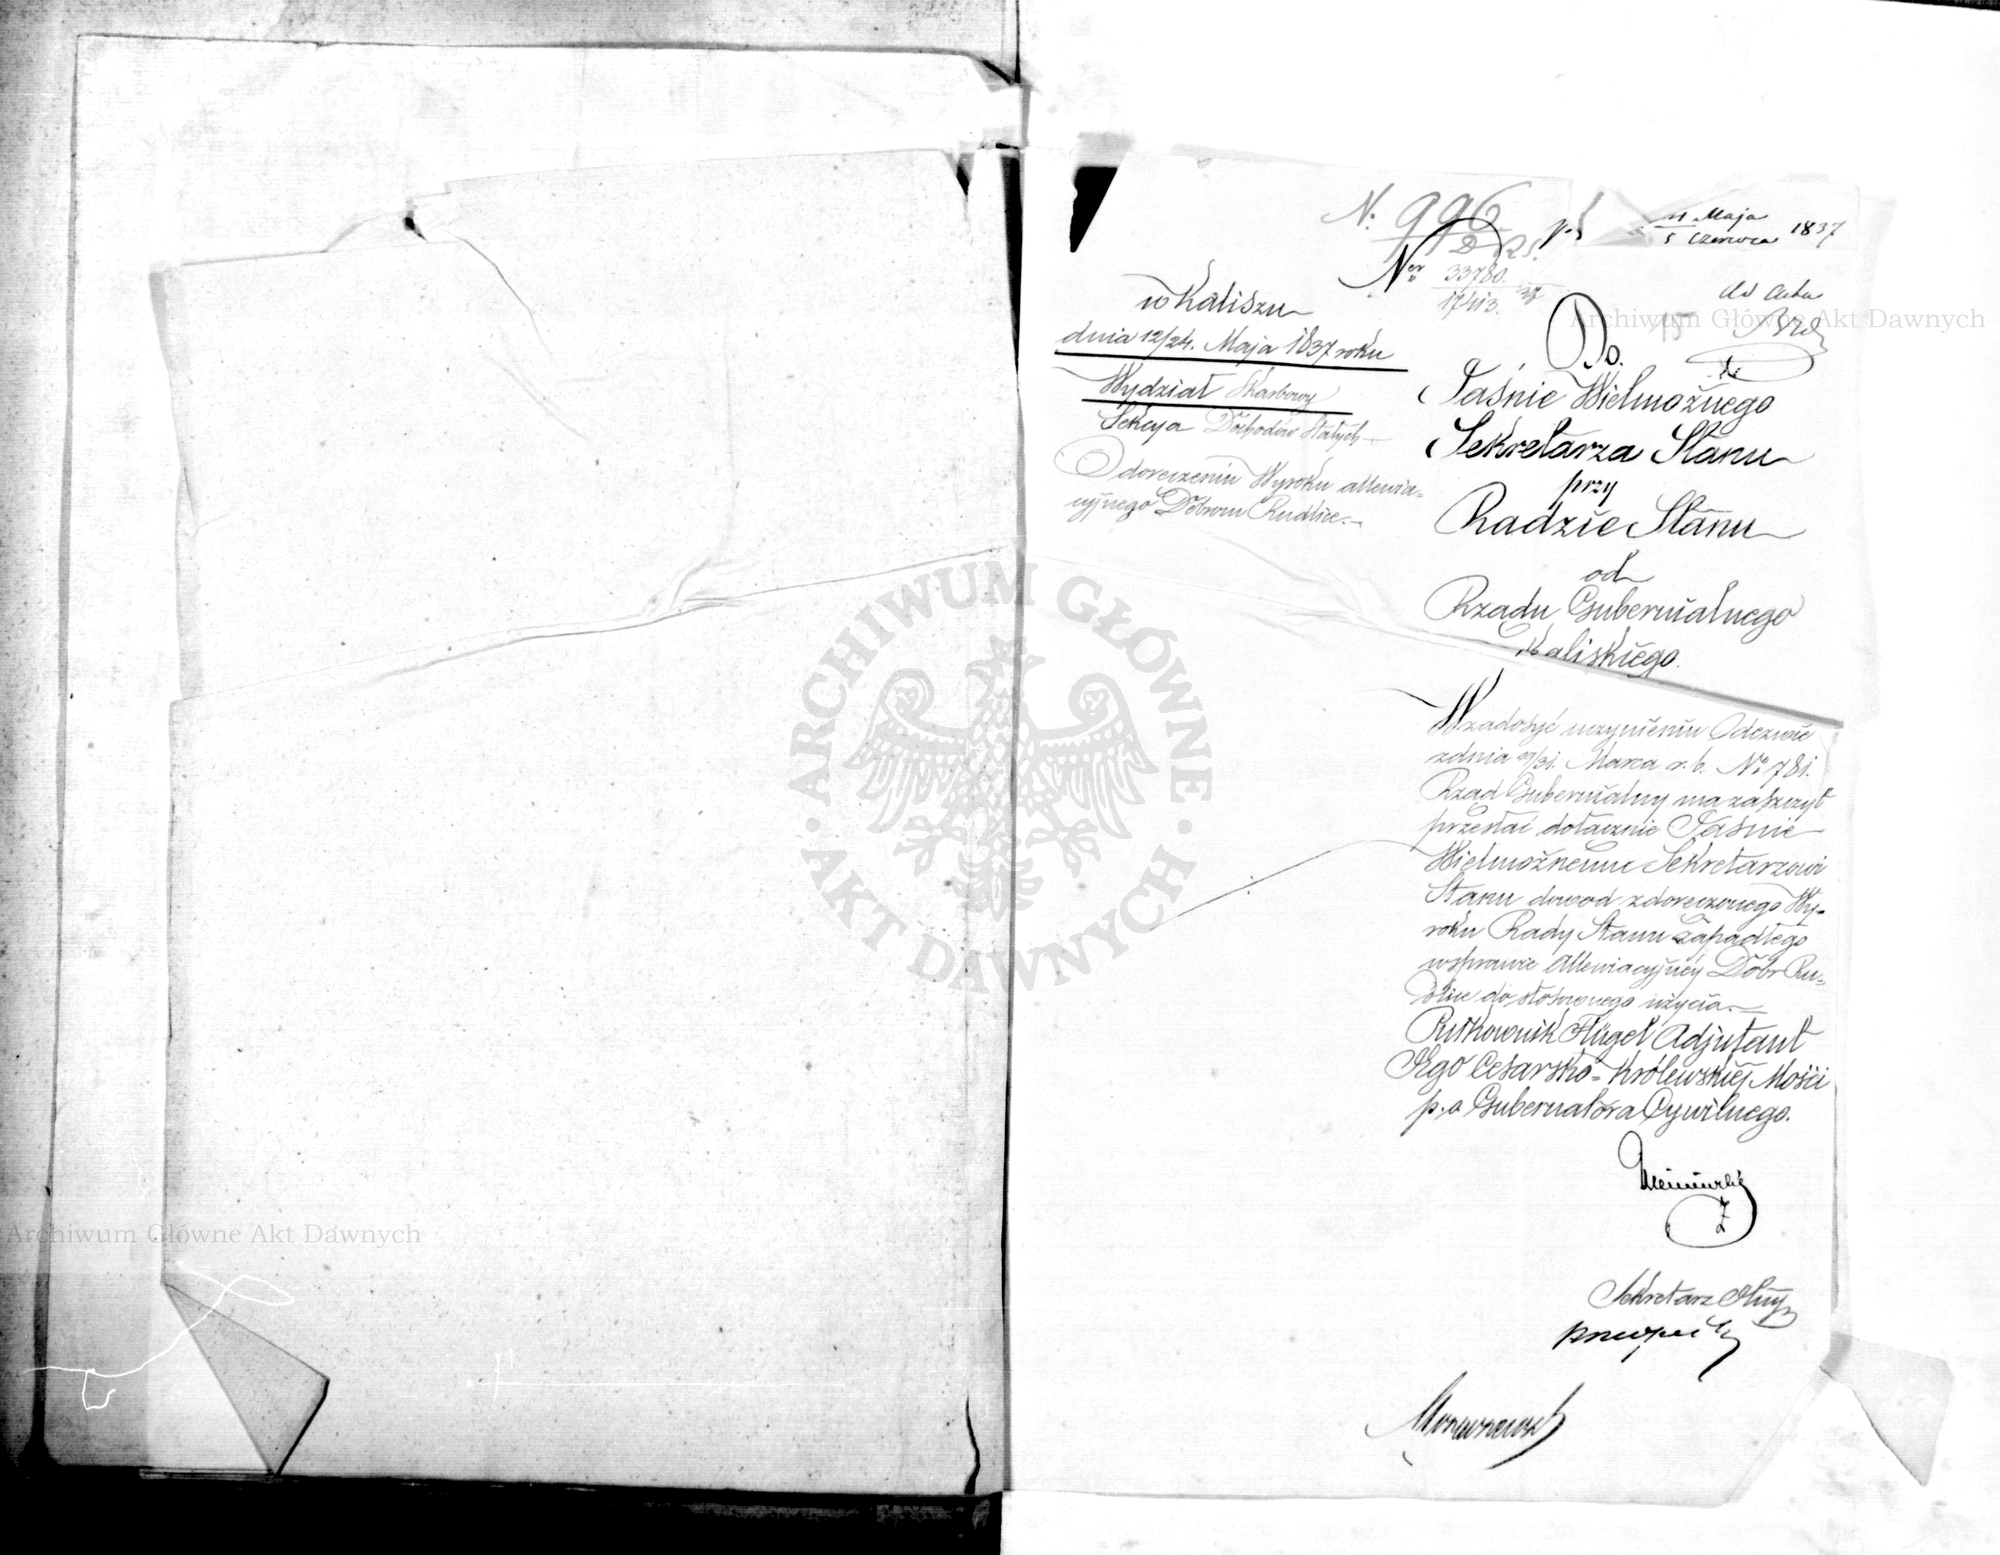 N. 996
24 Maja
5 Czerwca 1837
Ner 33780.
17413.
w Kaliszu
dnia 12/24. Maja 1837 roku
Wydział Skarbowy
Sekcya Dochodów Stałych
O doręczeniu Wyroku allewia=
cyjnego Dobrom Rudlice.
ad acta
Do.
Jaśnie Wielmożnego
Sekretarza Stanu
przy
Radzie Stanu
od
Rządu Gubernialnego
Kaliskiego.
Wzadosyć uczynieniu Odezwie
zdnia 19/31. Marca r. b. No 781.
Rząd Gubernialny ma zaszczyt
przesłać dołącznie Jaśnie
Wielmożnemu Sekretarzowi
Stanu dowod z doręczonego Wy=
roku Rady Stanu zapadłego
wsprawie Allewiacyjnéy Dobr Ru=
dlice do stosownego użycia.
Pułkownik Flügel Adjutant
Jego Cesarsko=Królewskiéj Mości
p. o Gubernatora Cywilnego.
Sekretarz Jlny
Archiwum Główne Akt Dawnych
ARCHIWUM GŁÓWNE · AKT DAWNYCH ·
Archiwum Główne Akt Dawnych